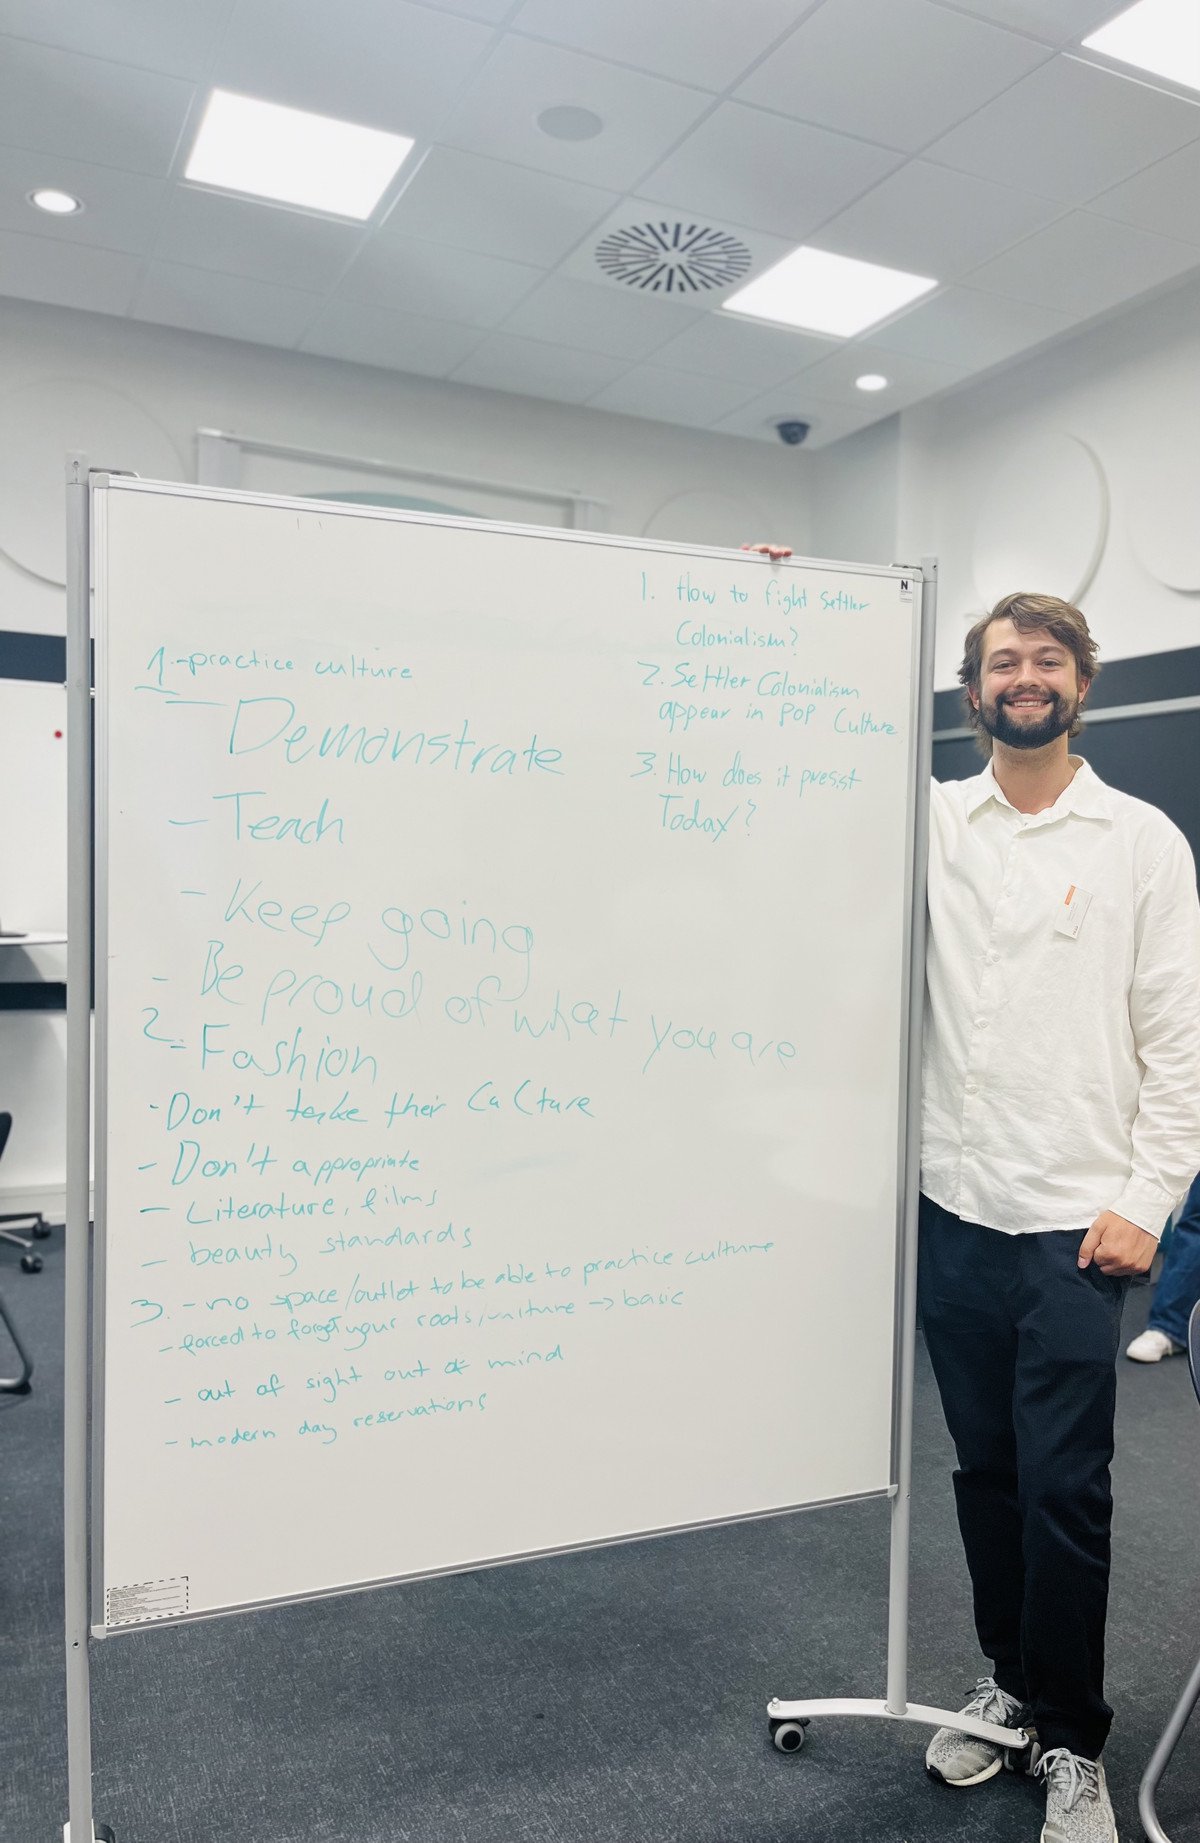 1. How to fight Settler
Colonialism?
2. Settler Colonialism
appear in POP Culture
3. How does it presist
Today?
1. -practice culture
- Demonstrate
- Teach
- Keep going
- Be proud of what you are
2. - Fashion
- Don't take their Culture
- Don't appropriate
- Literature, films
- beauty standards
3. - no space/outlet to be able to practice culture
- forced to forget your roots/culture → basic
- out of sight out of mind
- modern day reservations
N